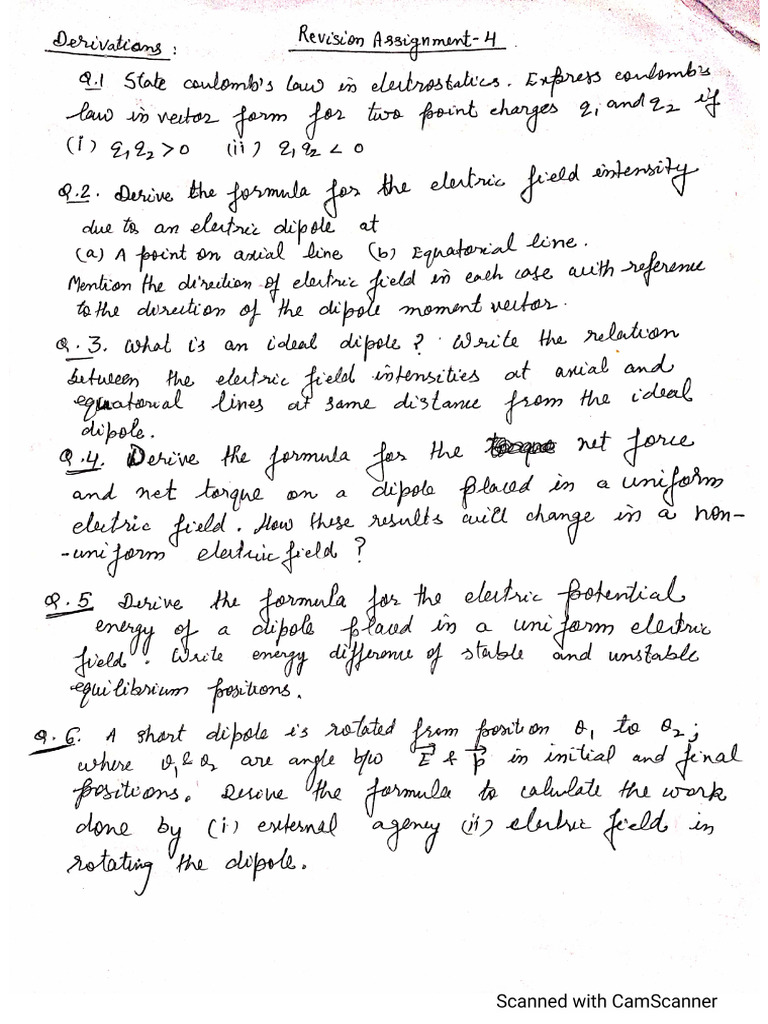 Revision Assignment-4
Derivations:
Q.1 State coulomb's law in electrostatics. Express coulomb's
law in vector form for two point charges q₁ and q₂ if
(i) q₁q₂ > 0 (ii) q₁q₂ < 0
Q.2. Derive the formula for the electric field intensity
due to an electric dipole at
(a) A point on axial line (b) Equatorial line.
Mention the direction of electric field in each case with reference
to the direction of the dipole moment vector.
Q.3. What is an ideal dipole? Write the relation
between the electric field intensities at axial and
equatorial lines at same distance from the ideal
dipole.
Q.4. Derive the formula for the net force
and net torque on a dipole placed in a uniform
electric field. How these results will change in a non-
-uniform electric field?
Q.5 Derive the formula for the electric potential
energy of a dipole placed in a uniform electric
field. Write energy difference of stable and unstable
equilibrium positions.
Q.6. A short dipole is rotated from position θ₁ to θ₂;
where θ₁ & θ₂ are angle b/w E⃗ & P⃗ in initial and final
positions. Derive the formula to calculate the work
done by (i) external agency (ii) electric field in
rotating the dipole.
Scanned with CamScanner